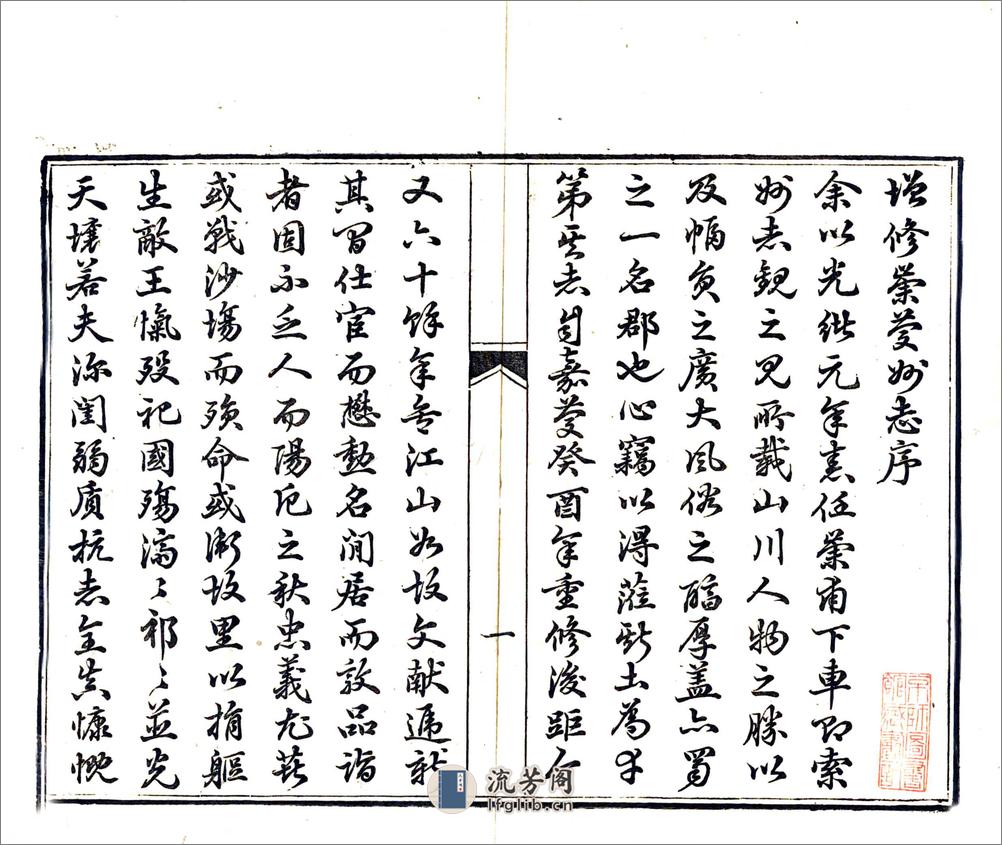 增修崇慶州志序
余以光緒元年任崇甫下車即索
州志觀之見所載山川人物之勝以
及幅員之廣大風俗之醕厚蓋亦蜀
之一名郡也心竊以得蒞斯土為幸
第其志自嘉慶癸酉年重修後距今
又六十餘年矣江山如故文獻遞
其間仕宦而懋勳名閒居而敦品詣
者固不乏人而陽厄之秋忠義尤甚
或戰沙場而殞命或衛故里以捐軀
生敵王愾歿祀國殤濟〻祁〻並光
天壤若夫深閨弱質抗志全貞慷慨
一
流芳阁
lfglib.cn